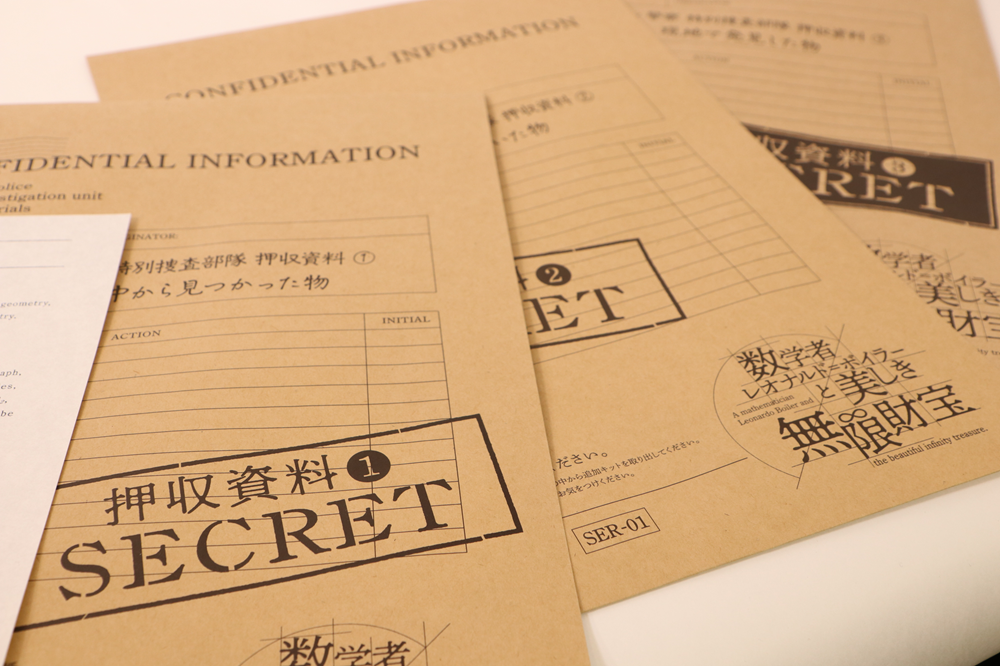 FIDENTIAL INFORMATION
olice
stigation unit
rials
INATOR:
特別捜査部隊 押収資料①
中から見つかった物
ACTION INITIAL
押収資料❶
SECRET
数学者
geometry,
try,
aph,
es,
be
CONFIDENTIAL INFORMATION
押収資料②
った物
❷
ET
ださい。
中から追加キットを取り出してください。
お気をつけください。
SER-01
数学者
レオナルド=ボイラー
と美しき
A mathematician
Leonardo Boiler and
無限財宝
the beautiful infinity treasure.
現地で発見した物
収資料❸
CRET
数学者
ルド=ボイラー
美しき
財宝